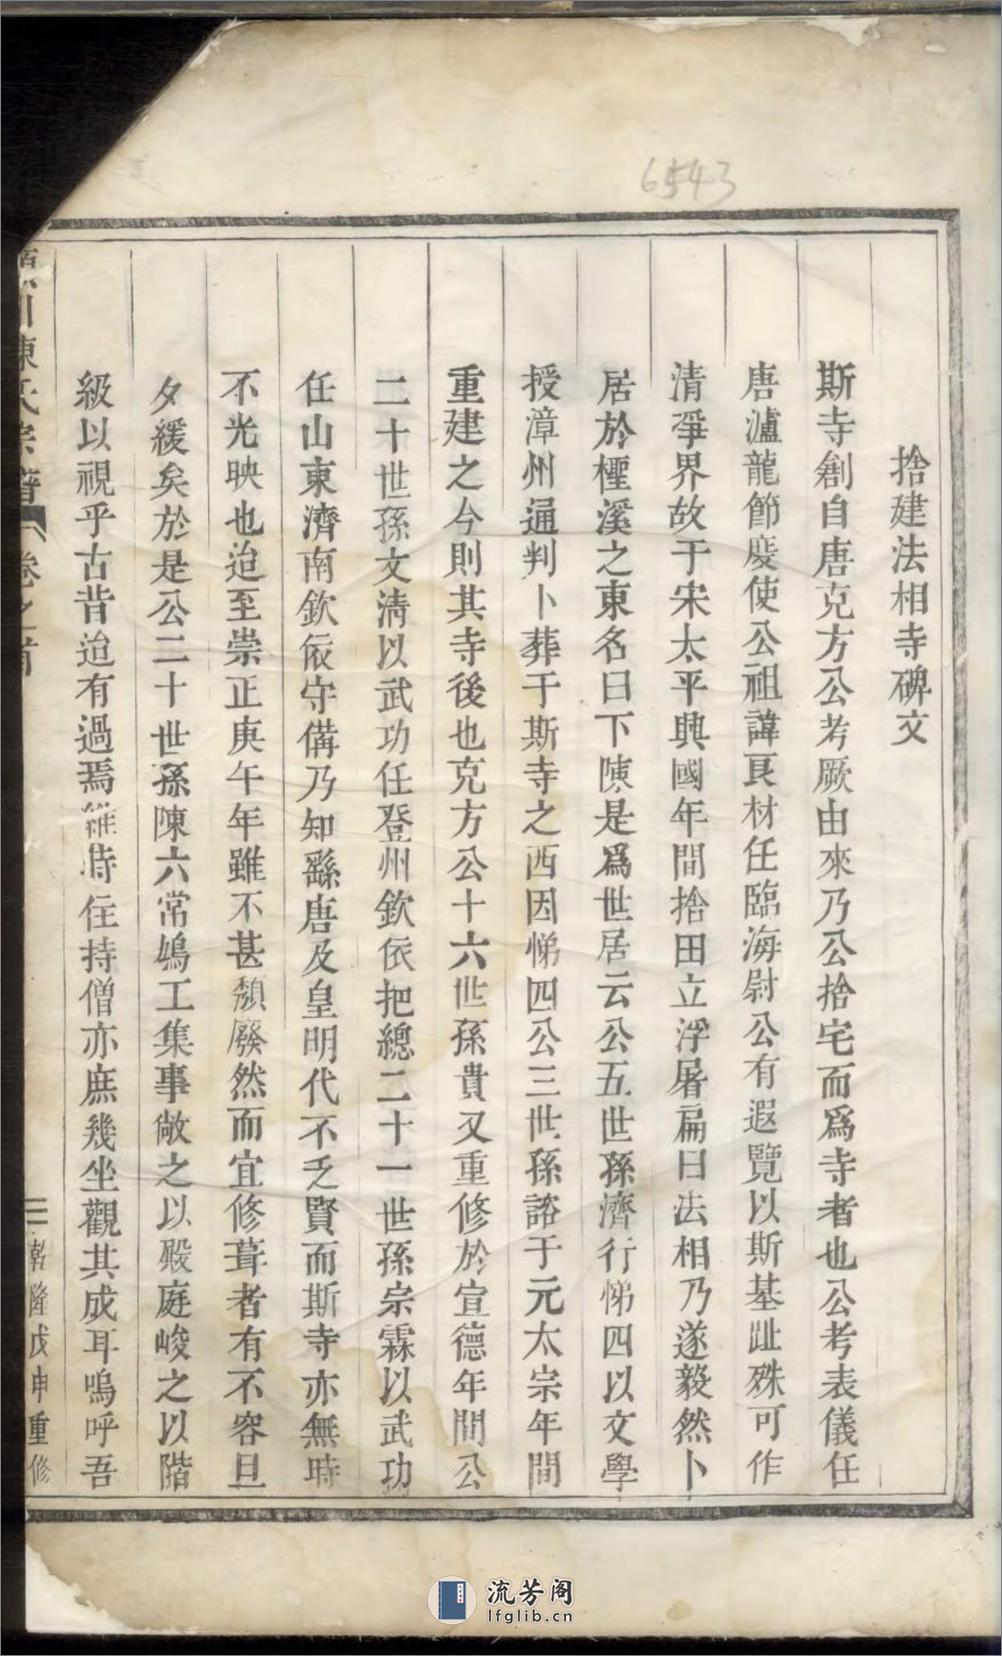 6543
捨建法相寺碑文
斯寺創自唐克方公考厥由來乃公捨宅而爲寺者也公考表儀任
唐瀘龍節度使公祖諱良材任臨海尉公有遐覽以斯基趾殊可作
清爭界故于宋太平興國年間捨田立浮屠扁曰法相乃遂毅然卜
居於檉溪之東名曰下陳是爲世居云公五世孫濟行悌四以文學
授漳州通判卜葬于斯寺之西因悌四公三世孫谿于元太宗年間
重建之今則其寺後也克方公十六世孫貴又重修於宣德年間公
二十世孫文淸以武功任登州欽依把總二十一世孫宗霖以武功
任山東濟南欽依守備乃知繇唐及皇明代不乏賢而斯寺亦無時
不光映也迨至崇正庚午年雖不甚頹廢然而宜修葺者有不容旦
夕緩矣於是公二十世孫陳六常鳩工集事敞之以殿庭峻之以階
級以視乎古昔迨有過焉維時住持僧亦庶幾坐觀其成耳嗚呼吾
川陳氏宗譜 卷之首 三 乾隆戊申重修
流芳阁
lfglib.cn